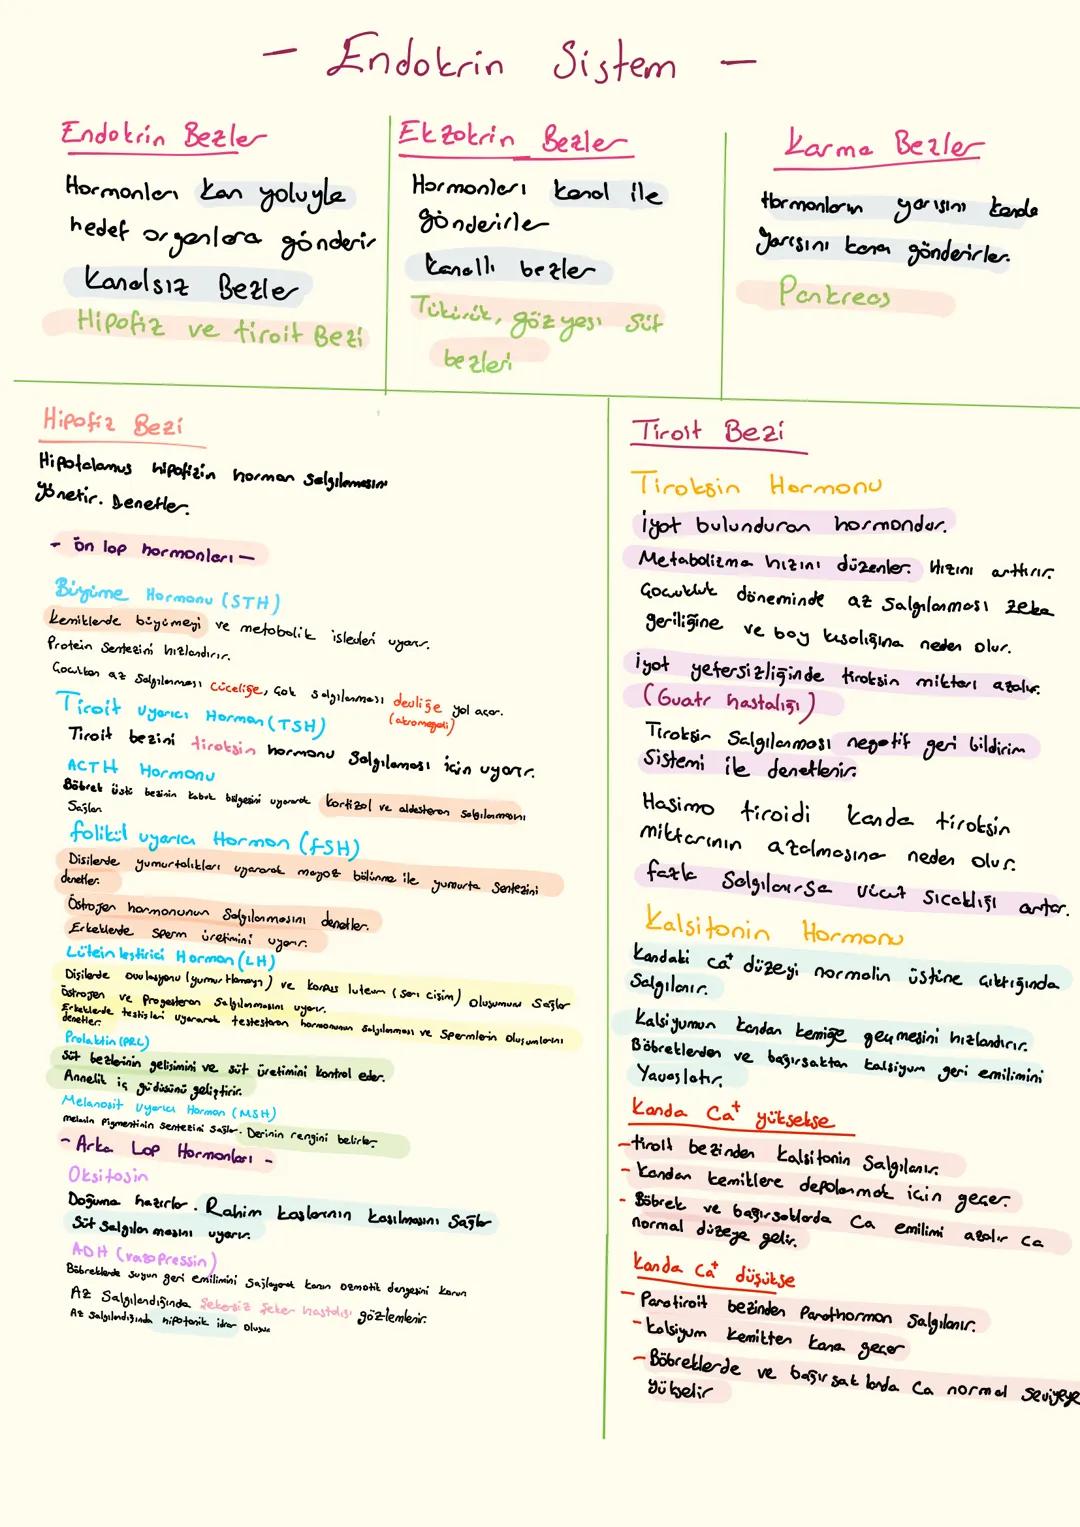 - Endokrin Sistem -
Endokrin Bezler
Hormonları kan yoluyla
hedef organlara gönderir
Kanalsız Bezler
Hipofiz ve tiroit Bezi
Ekzokrin Bezler
Hormonları kanal ile
gönderirler
Kanallı bezler
Tükürük, göz yaşı süt
bezleri
Karma Bezler
Hormonların yarısını kanala
yarısını kana gönderirler.
Pankreas
Hipofiz Bezi
Hipotalamus hipofizin hormon salgılamasını
yönetir. Denetler.
- ön lop hormonları -
Büyüme Hormonu (STH)
Kemiklerde büyümeyi ve metabolik işlevleri uyarır.
Protein Sentezini hızlandırır.
Çocukken az salgılanması cüceliğe, çok salgılanması devliğe yol açar.
(akromegali)
Tiroit uyarıcı Hormon (TSH)
Tiroit bezini tiroksin hormonu salgılaması için uyarır.
ACTH Hormonu
Böbrek üstü bezinin kabuk bölgesini uyararak kortizol ve aldesteron salgılanmasını
Sağlar
folikül uyarıcı Hormon (fSH)
Dişilerde yumurtalıkları uyararak mayoz bölünme ile yumurta sentezini
denetler.
Östrojen hormonunun salgılanmasını denetler.
Erkeklerde sperm üretimini uyarır.
Lütein leştirici Hormon (LH)
Dişilerde ovulasyonu (yumurtlamayı) ve korpus luteum (sarı cisim) oluşumunu sağlar
Östrojen ve Progesteron salgılanmasını uyarır.
Erkeklerde testisleri uyararak testesteron hormonunun salgılanması ve Spermlerin oluşumlarını
denetler.
Prolaktin (PRL)
Süt bezlerinin gelişimini ve süt üretimini kontrol eder.
Annelik iç güdüsünü geliştirir.
Melanosit uyarıcı Hormon (MSH)
melanin Pigmentinin sentezini sağlar. Derinin rengini belirler.
- Arka Lop Hormonları -
Oksitosin
Doğuma hazırlar. Rahim kaslarının kasılmasını sağlar
Süt salgılanmasını uyarır.
ADH (vazopressin)
Böbreklerde suyun geri emilimini sağlayarak kanın ozmotik dengesini korur
Az Salgılandığında şekersiz şeker hastalığı gözlemlenir.
Az salgılandığında hipotonik idrar oluşur
Tiroit Bezi
Tiroksin Hormonu
iyot bulunduran hormondur.
Metabolizma hızını düzenler. Hızını arttırır.
Çocukluk döneminde az salgılanması zeka
geriliğine ve boy kısalığına neden olur.
iyot yetersizliğinde tiroksin miktarı azalır.
(Guatr hastalığı)
Tiroksin Salgılanması negatif geri bildirim
Sistemi ile denetlenir.
Haşimo tiroidi kanda tiroksin
miktarının azalmasına neden olur.
fazla Salgılanırsa vücut sıcaklığı artar.
Kalsitonin Hormonu
Kandaki ca⁺ düzeyi normalin üstüne çıktığında
Salgılanır.
Kalsiyumun kandan kemiğe geçmesini hızlandırır.
Böbreklerden ve bağırsaktan kalsiyum geri emilimini
Yavaşlatır.
Kanda Ca⁺ yüksekse
- tiroit bezinden kalsitonin Salgılanır.
- Kandan kemiklere depolanmak için geçer.
- Böbrek ve bağırsaklarda Ca emilimi azalır Ca
normal düzeye gelir.
Kanda Ca⁺ düşükse
- Paratiroit bezinden Parathormon Salgılanır.
- Kalsiyum kemikten kana geçer
- Böbreklerde ve bağırsaklarda Ca normal seviyeye
yükselir